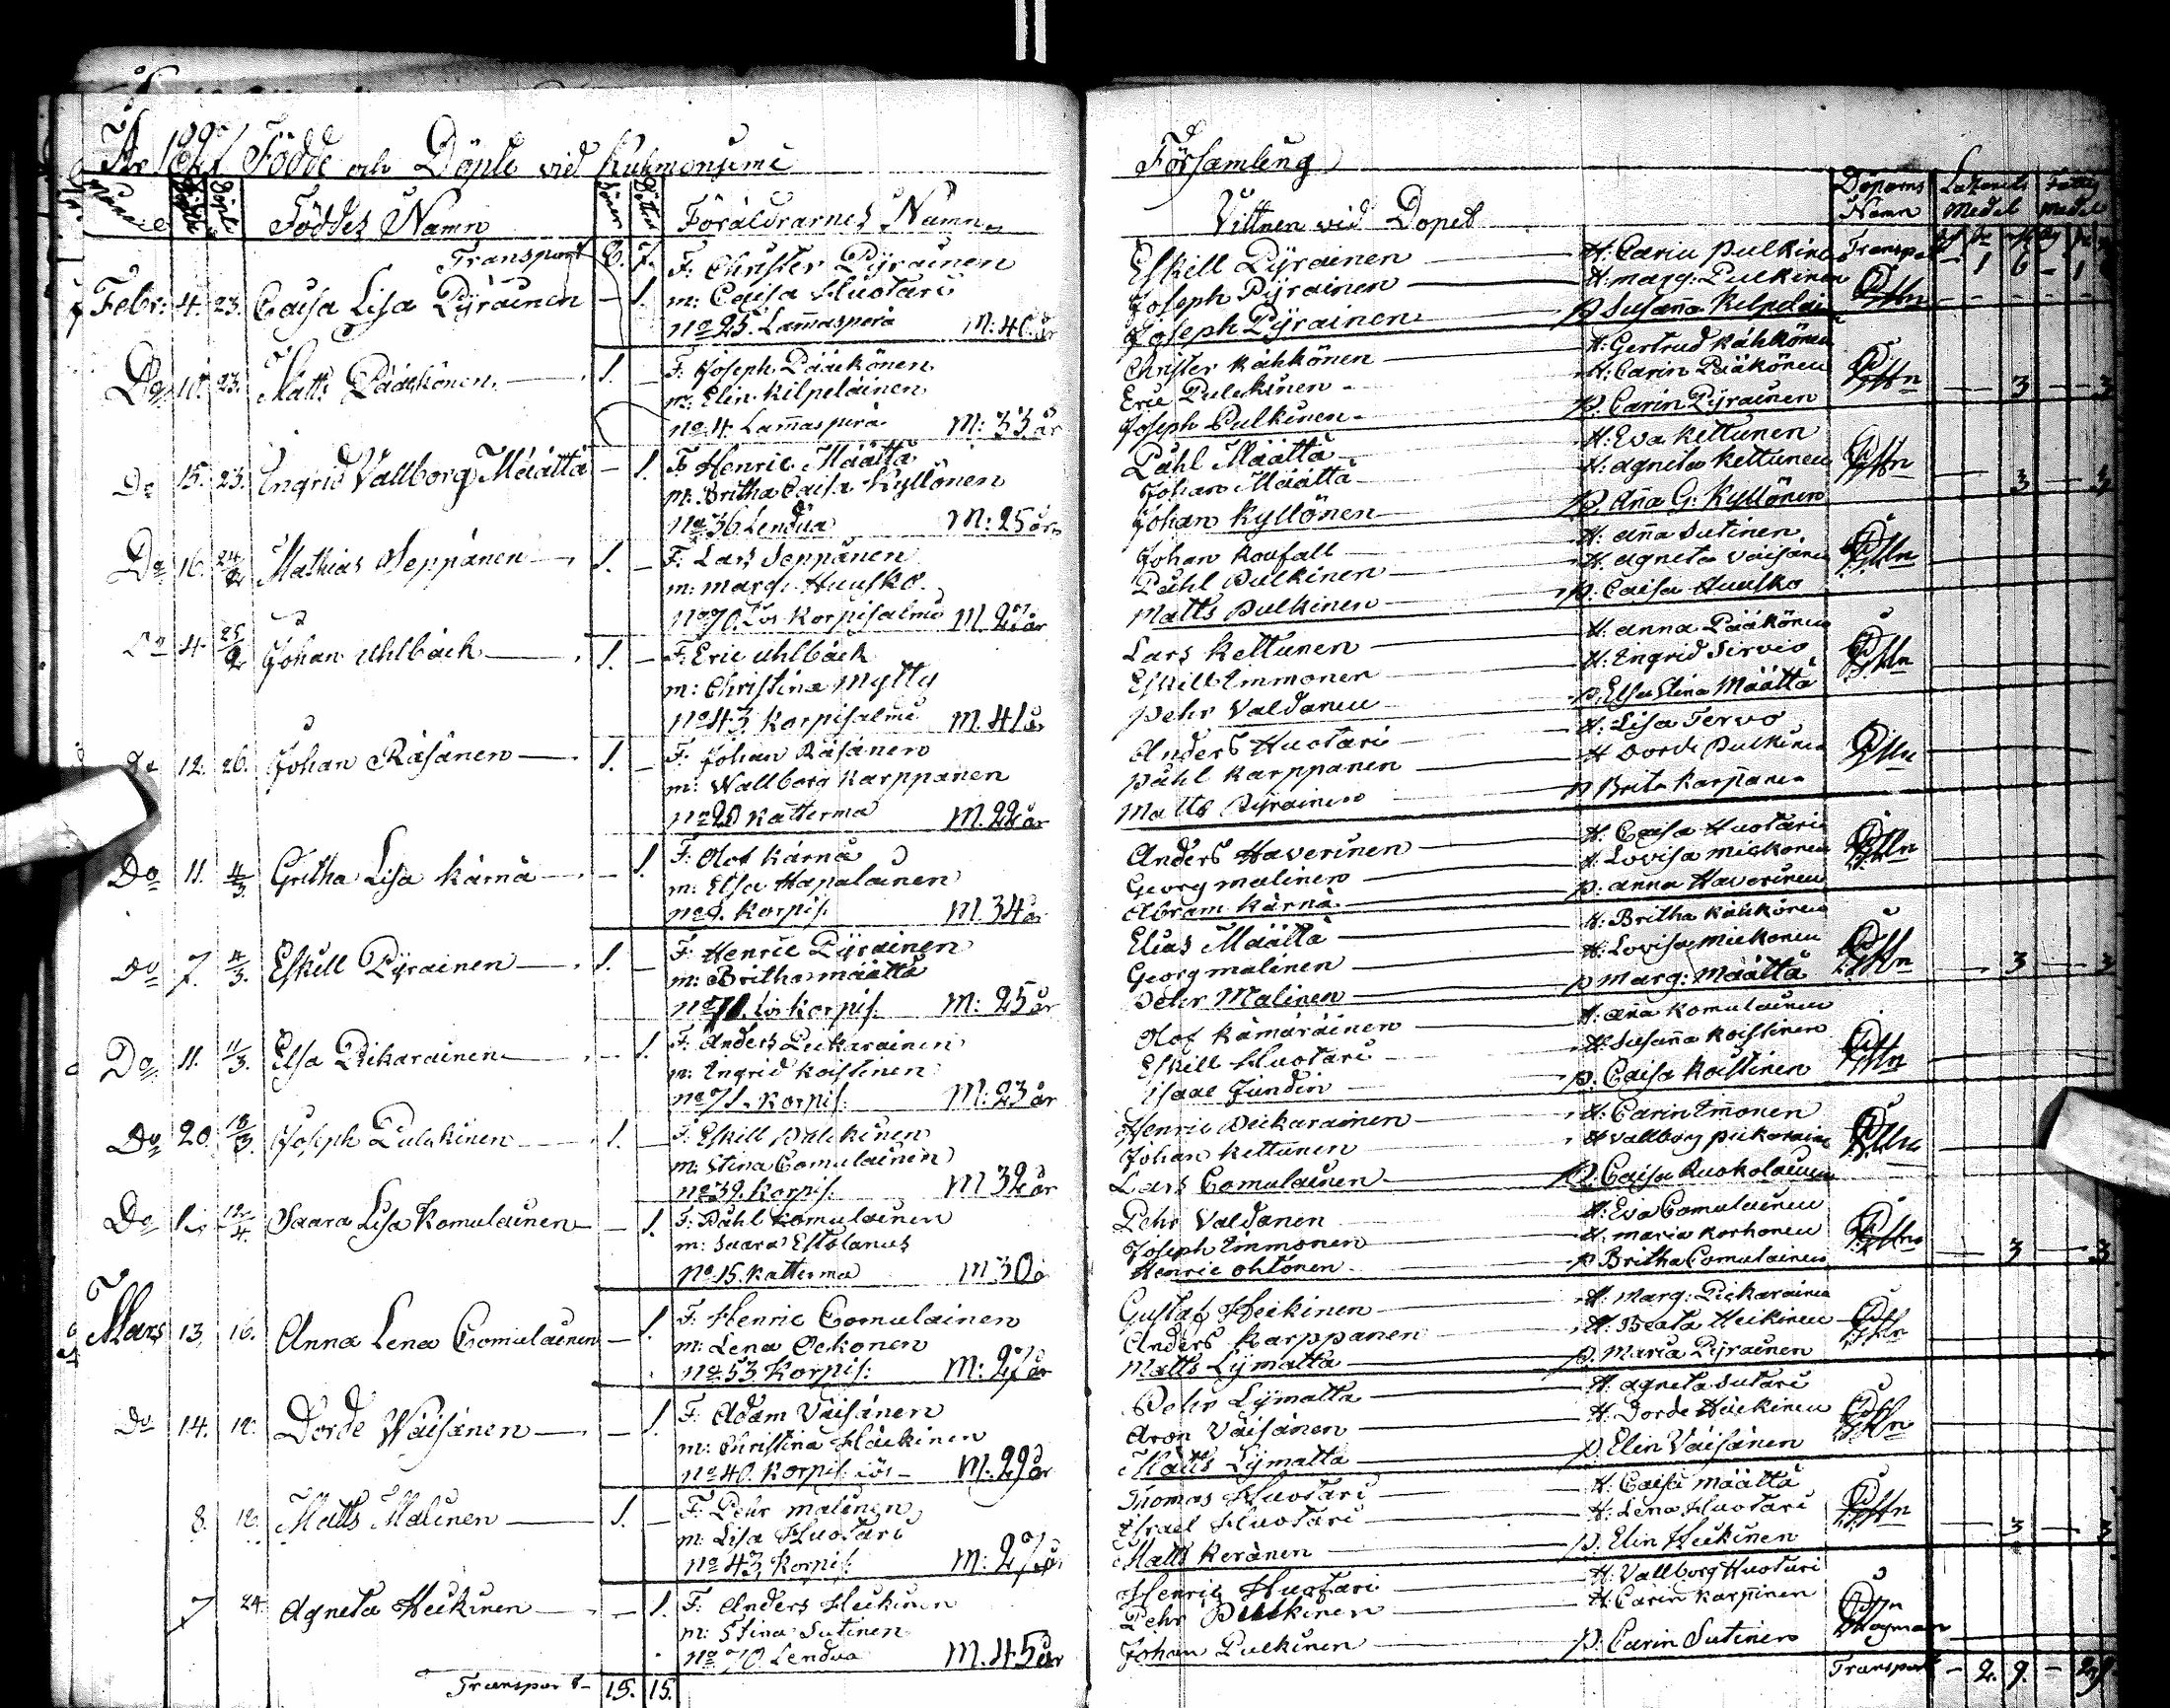 År 1827 Födde och Döpte vid Kuhmoniemi Församling
Födde Döpte Föddes Namn Söner Döttrar Föräldrarnes Namn
Transport 8. 7.
Febr: 4. 23. Caisa Lisa Pyräinen — 1. F: Christer Pyräinen
m: Caisa Huotari
No 25. Lam̄asperä M: 40 år
Do 11. 23. Matts Pääkkönen 1. — F: Joseph Pääkönen
m: Elin Kilpeläinen
No 4 Lam̄asperä M: 33 år
Do 15. 23. Ingrid Vallborg Määttä — 1. F: Henric Määttä
m: Britha Caisa Kyllönen
No 36 Lendua M: 25 år
Do 16. 24/2 Mathias Seppänen 1. — F: Lars Seppänen
m: Marg: Huusko
No 70. Lös Korpisalmi M. 27 år
Do 4. 25/2 Johan Uhlbäck 1. — F: Eric Uhlbäck
m: Christina Mylly
No 43 Korpisalmi M. 41 år
Do 12. 26. Johan Räsänen 1. — F: Johan Räsänen
m: Wallborg Karppanen
No 20 Katterma M. 22 år
Do 11. 4/3. Gretha Lisa Kärnä — 1. F: Olof Kärnä
m: Elsa Hapalainen
No 8. Korpis. M. 34 år
Do 7. 4/3. Eskill Pyräinen 1. — F: Henric Pyräinen
m: Britha Määttä
No 70. Lös Korpis. M: 25 år
Do 11. 11/3. Elsa Pikarainen — 1. F: Anders Pickarainen
m: Ingrid Koistinen
No 71. Korpis. M: 23 år
Do 20. 18/3. Joseph Pulckinen 1. — F: Eskill Pulckinen
m: Stina Comulainen
No 39. Korpis. M 32 år
Do 1. Saara Lisa Komulainen — 1. F: Påhl Komulainen
m: Saara Estolanus
No 15. Katterma M 30 år
Mars 13. 16. Anna Lena Comulainen — 1. F: Henric Comulainen
m: Lena Ockonen
No 53 Korpis: M: 27 år
Do 14. 18. Dorde Wäisänen — 1. F: Adam Väisänen
m: Christina Häickinen
No 40. Korpis. Lös M. 29 år
8. 18. Matts Malinen 1. — F: Pehr Malinen
m: Lisa Huotari
No 43 Korpis. M: 27 år
7 24. Agneta Heikinen — 1. F: Anders Heikinen
m: Stina Sutinen
No 70 Lendua M. 45 år
Transport 15. 15.
Vittnen vid Dopet Döparns Namn Medel Medel
Eskill Pyräinen H: Carin Pulkinen Transp. 1 6 - 1 6
Joseph Pyräinen H: Marg: Pulkinen
Joseph Pyräinen p Susan̄a Kilpeläinen
Christer Kähkönen H: Gertrud Kähkönen
Eric Pulckinen H: Carin Pääkönen
Joseph Pulkinen p. Carin Pyräinen 3 3
Påhl Määttä H: Eva Kettunen
Johan Määttä H: Agneta Kettunen
Johan Kyllönen p. An̄a G: Kyllönen 3 3
Johan Roufall H: An̄a Sutinen
Påhl Pulkinen H: Agneta Väisänen
Matts Pulkinen p. Caisa Huusko
Lars Kettunen H: Anna Pääkönen
Eskill Immonen H: Ingrid Servio
Pehr Valdanen p. Elsa Stina Määttä
Anders Huotari H: Lisa Tervo
Påhl Karppanen H Dorde Pulkinen
Matts Pyräinen p Brita Karppanen
Anders Haverinen H: Caisa Huotari
Georg Malinen H. Lovisa Mickonen
Abram Kärnä p: Anna Haverinen
Elias Määttä H: Britha Kähkönen
Georg Malinen H: Lovisa Mickonen
Pehr Malinen p Marg: Määttä 3 3
Olof Kämäräinen H: An̄a Komulainen
Eskill Huotari H: Susan̄a Koistinen
Isaac Jundin p. Caisa Koistinen
Henric Pickarainen H: Carin Im̄onen
Johan Kettunen H Vallborg Pickarainen
Lars Comulainen p. Caisa Ruokolainen
Pehr Valdanen H: Eva Comulainen
Joseph Immonen H. Maria Korhonen
Henric Ohtonen p Britha Comulainen 3 3
Gustaf Heikinen H: Marg: Pickarainen
Anders Karppanen H: Beata Heikinen
Matts Lymatta p. Maria Pyräinen
Pehr Lymatta H: Agneta Sutari
Aron Väisänen H: Dorde Häickinen
Matts Lymatta p. Elin Väisänen
Thomas Huotari H. Caisa Määttä
Israel Huotari H: Lena Huotari
Matts Keränen p. Elin Heikinen 3 3
Henric Huotari H: Vallborg Huotari
Pehr Pulckinen H: Carin Karppinen
Johan Pulkinen p. Carin Sutinen
Transport - 2. 9. - 2. 9.